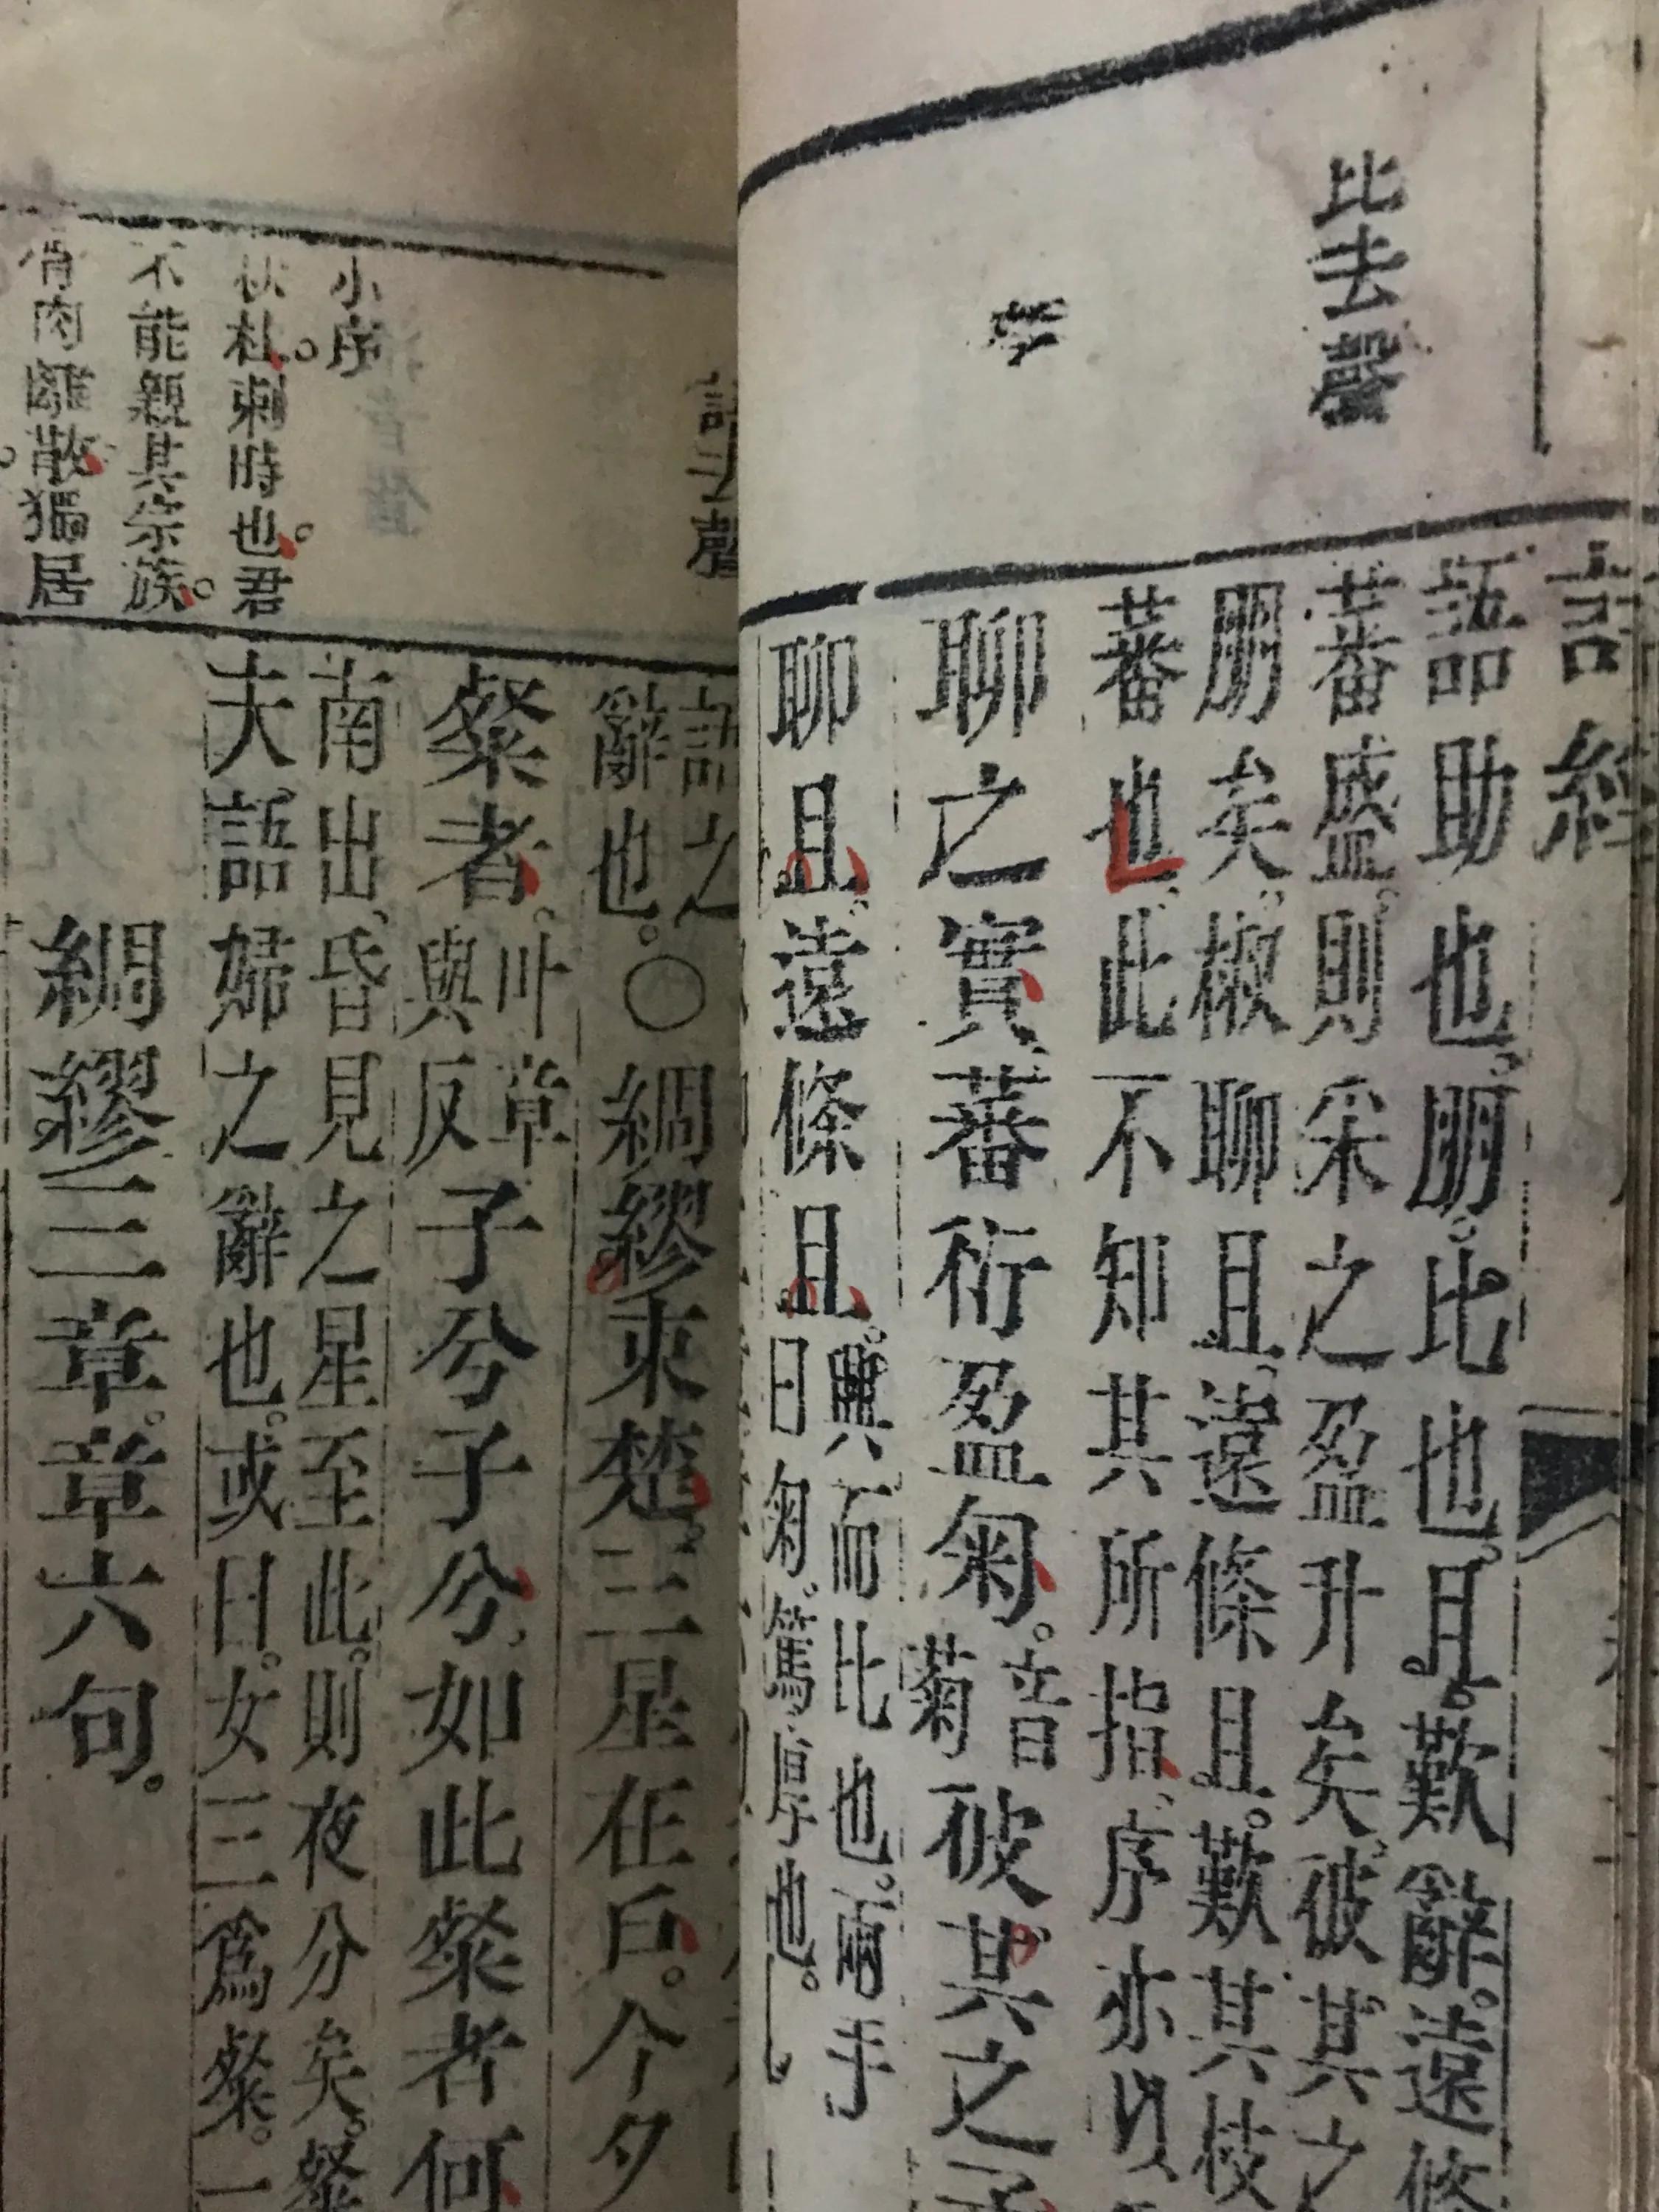 詩經
比去聲
語助也。朋。比也。且。歎辭。遠條
蕃盛。則采之盈升矣。彼其之
朋矣。椒聊且。遠條且。歎其枝
蕃也。此不知其所指。序亦以
聊之實。蕃衍盈匊。
音
菊
彼其之子
聊且。遠條且。
興而比也。兩手
曰匊。篤。厚也。
語之
辭也。○
綢繆束楚。三星在戶。今夕
粲者。
叶章
與反
子兮子兮。如此粲者何
南出。昏見之星至此。則夜分矣。粲
夫語婦之辭也。或曰。女三爲粲。一
綢繆三章。章六句。
小序
杕杜。刺時也。君
不能親其宗族。
骨肉離散。獨居